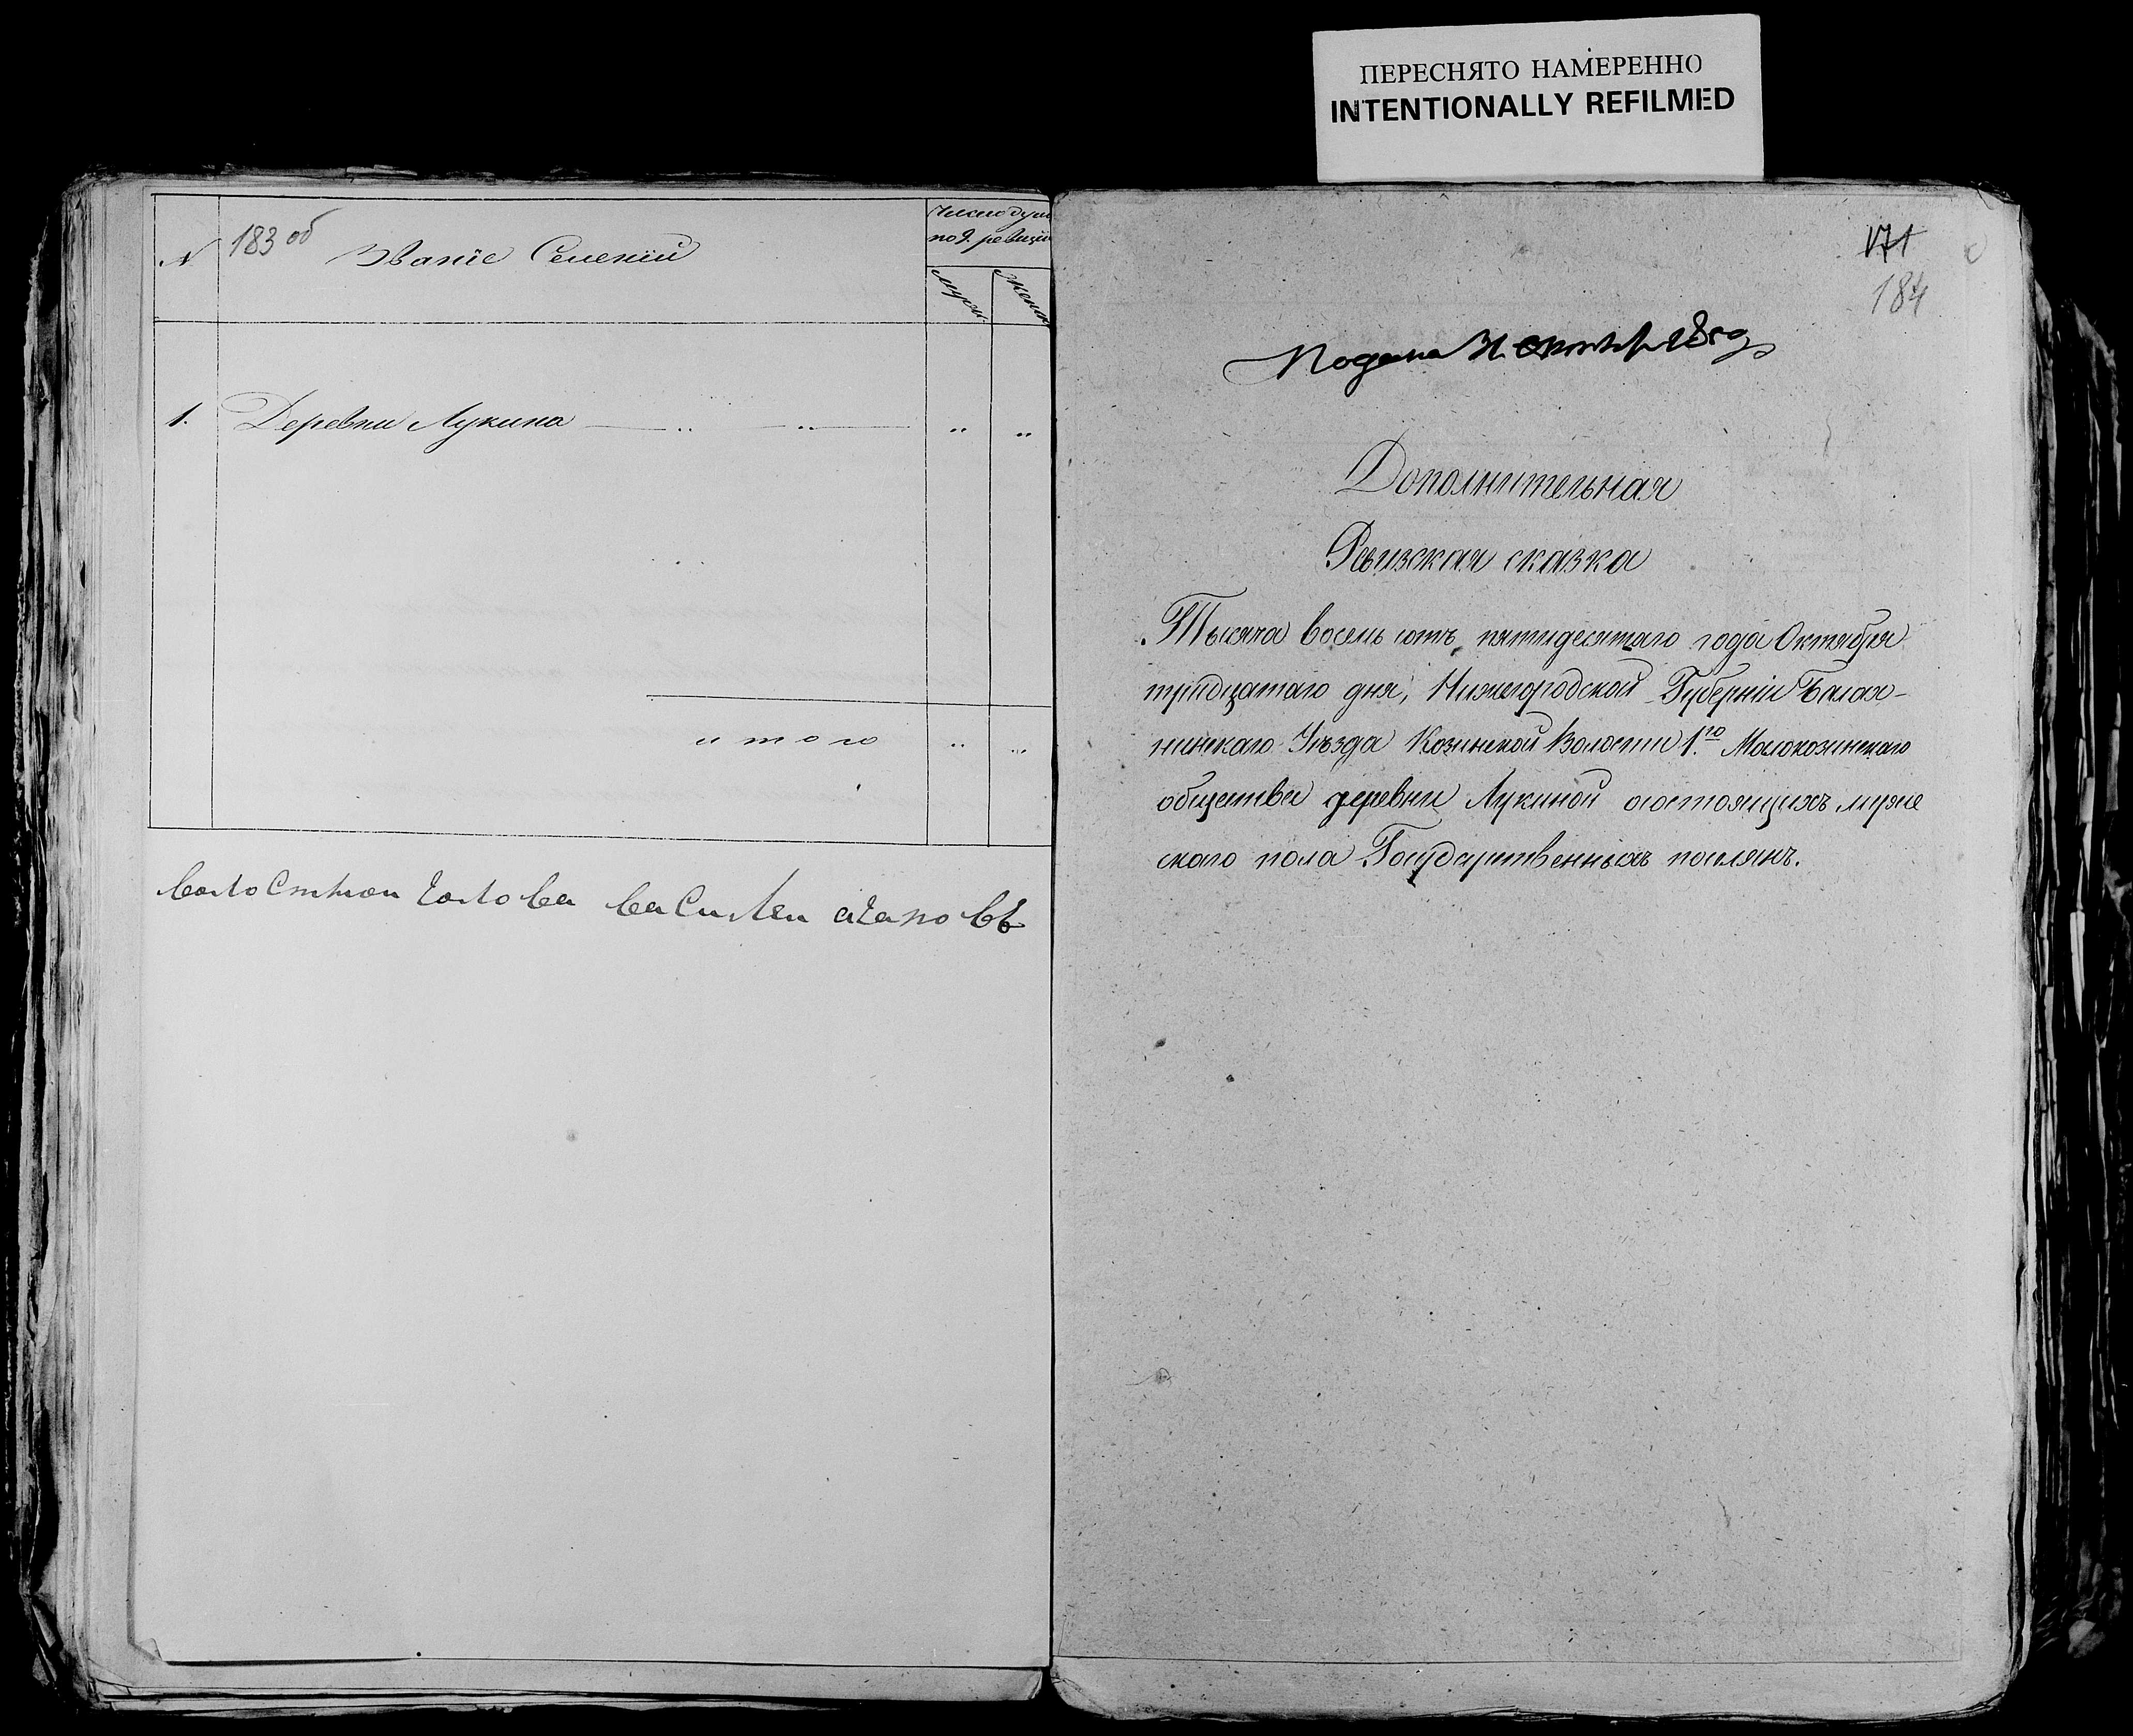 ПЕРЕСНЯТО НАМЕРЕННО
INTENTIONALLY REFILMED
183 об
№ Званіе Селеній
Число душ
по 9. ревизіи
муж. женск
1. Деревни Лукина
итого
волостнои голова василеи агаповъ
171
184
Подана 31 октября 1850
Дополнительная
Ревизская сказка
Тысяча восемь сотъ пятидесятаго года Октября
тридцатаго дня, Нижегородской Губерніи Балах-
нинскаго Уѣзда Козинской Волости 1.го Малокозинскаго
общества деревни Лукиной о состоящихъ муже
скаго пола Государственныхъ поселянъ.